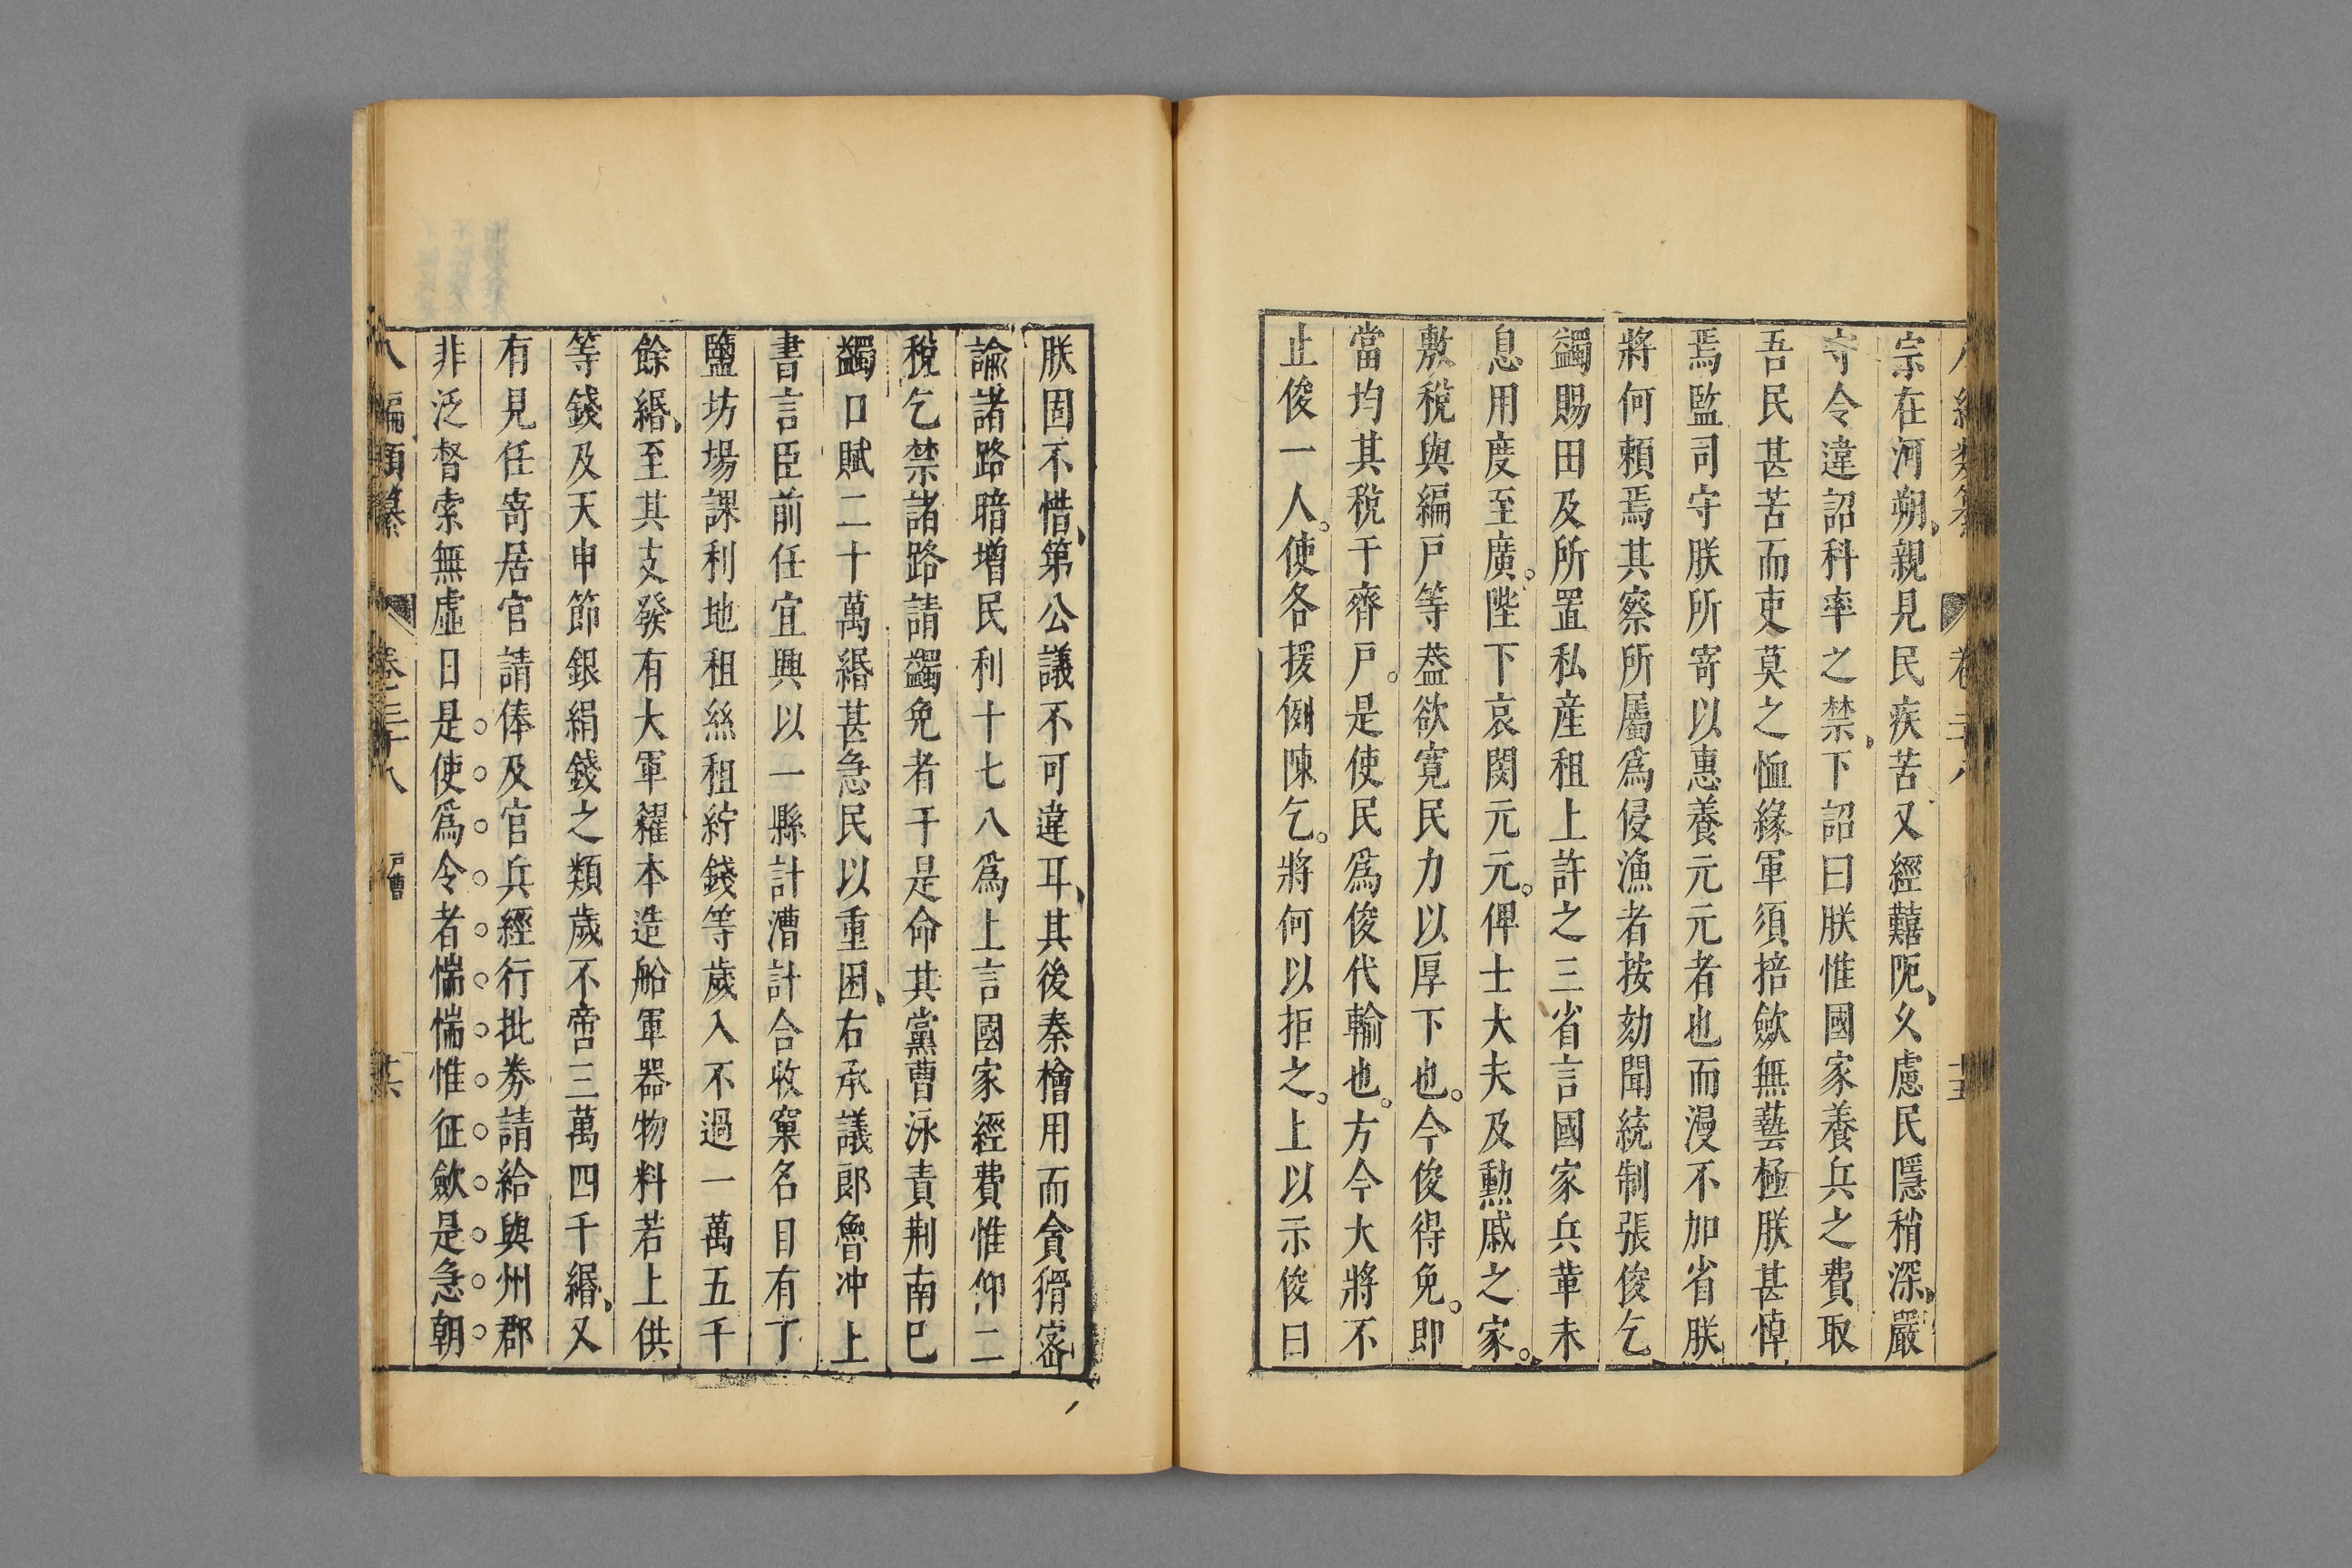 宗在河朔親見民疾苦又經囏阨久慮民隱稍深嚴
守令違詔科率之禁下詔曰朕惟國家養兵之費取
吾民甚苦而吏莫之恤緣軍須掊歛無藝極朕甚悼
焉監司守朕所寄以惠養元元者也而漫不加省朕
將何賴焉其察所屬爲侵漁者按劾聞統制張俊乞
蠲賜田及所置私産租上許之三省言國家兵革未
息用度至廣陛下哀閔元元俾士大夫及勲戚之家
敷稅與編戸等葢欲寛民力以厚下也今俊得免即
當均其稅于齊戸是使民爲俊代輸也方今大將不
止俊一人使各援例陳乞將何以拒之上以示俊曰
朕固不惜第公議不可違耳其後秦檜用而貪猾宻
諭諸路暗增民利十七八爲上言國家經費惟仰二
稅乞禁諸路請蠲免者于是命其黨曹泳責荆南已
蠲口賦二十萬緡甚急民以重困右承議郎魯冲上
書言臣前任宜興以一縣計漕計合收窠名目有丁
鹽坊場課利地租絲租紵錢等歲入不過一萬五千
餘緡至其支發有大軍糴本造船軍器物料若上供
等錢及天申節銀絹錢之類歲不啻三萬四千緡又
有見任寄居官請俸及官兵經行批券請給與州郡
非泛督索無虚日是使爲令者惴惴惟征歛是急朝
八編類纂 卷三十八 戸曹 十六